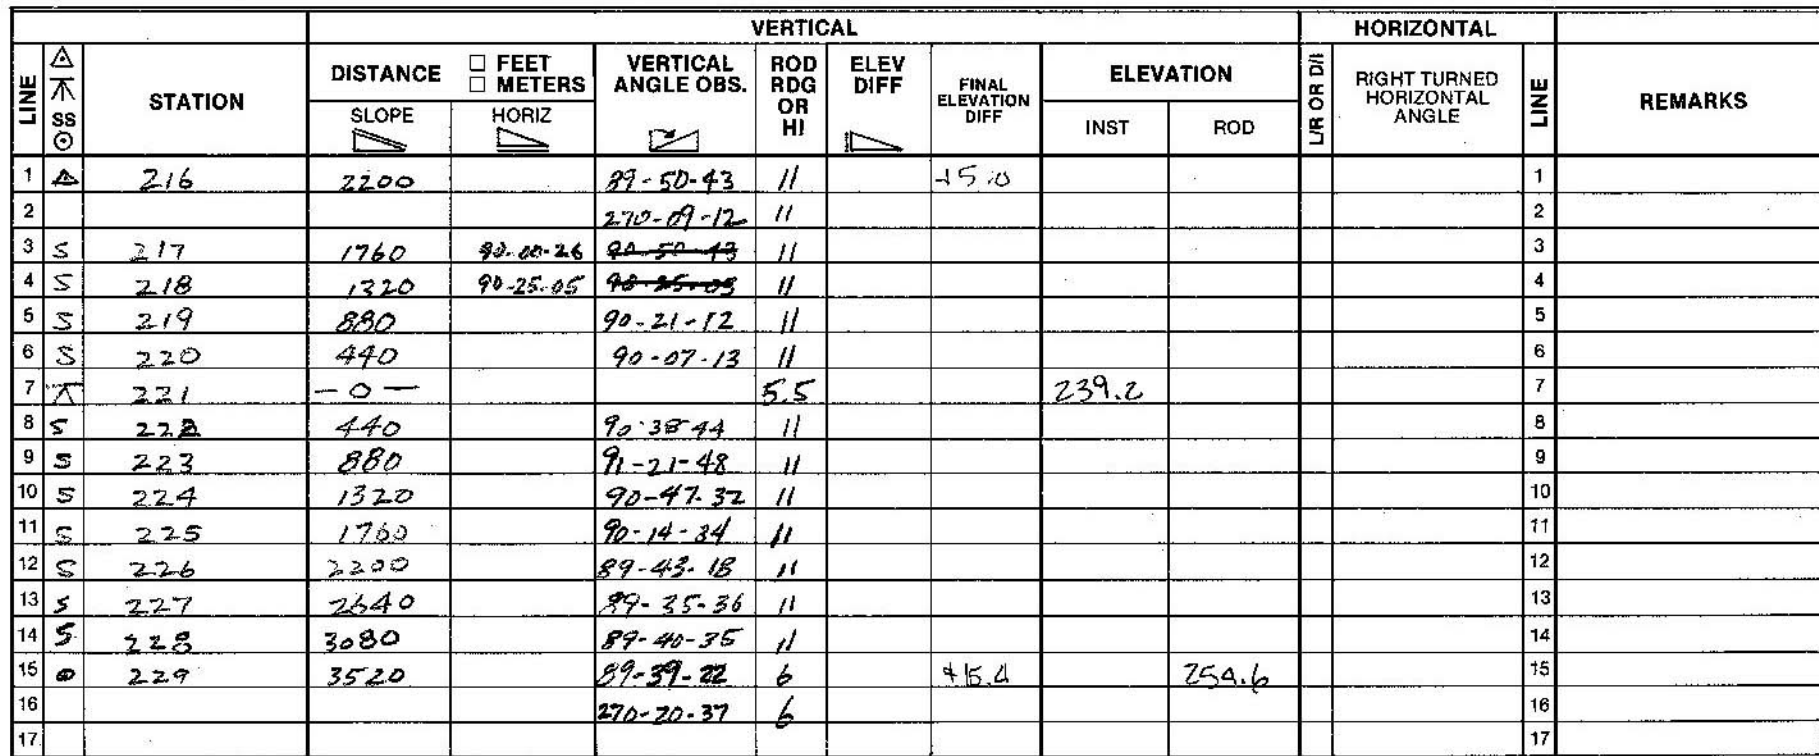 VERTICAL HORIZONTAL
LINE SS STATION DISTANCE □ FEET □ METERS VERTICAL ANGLE OBS. ROD RDG OR HI ELEV DIFF FINAL ELEVATION DIFF ELEVATION L/R OR D/I RIGHT TURNED HORIZONTAL ANGLE LINE REMARKS
SLOPE HORIZ INST ROD
1 216 2200 89-50-43 11 +5.0 1
2 270-09-12 11 2
3 S 217 1760 90-00-26 90-50-43 11 3
4 S 218 1320 90-25-05 90-25-05 11 4
5 S 219 880 90-21-12 11 5
6 S 220 440 90-07-13 11 6
7 221 -0- 5.5 239.2 7
8 S 222 440 90-38-44 11 8
9 S 223 880 91-21-48 11 9
10 S 224 1320 90-47-32 11 10
11 S 225 1760 90-14-34 11 11
12 S 226 2200 89-43-18 11 12
13 S 227 2640 89-35-36 11 13
14 S 228 3080 89-40-35 11 14
15 229 3520 89-39-22 6 +15.4 254.6 15
16 270-20-37 6 16
17 17